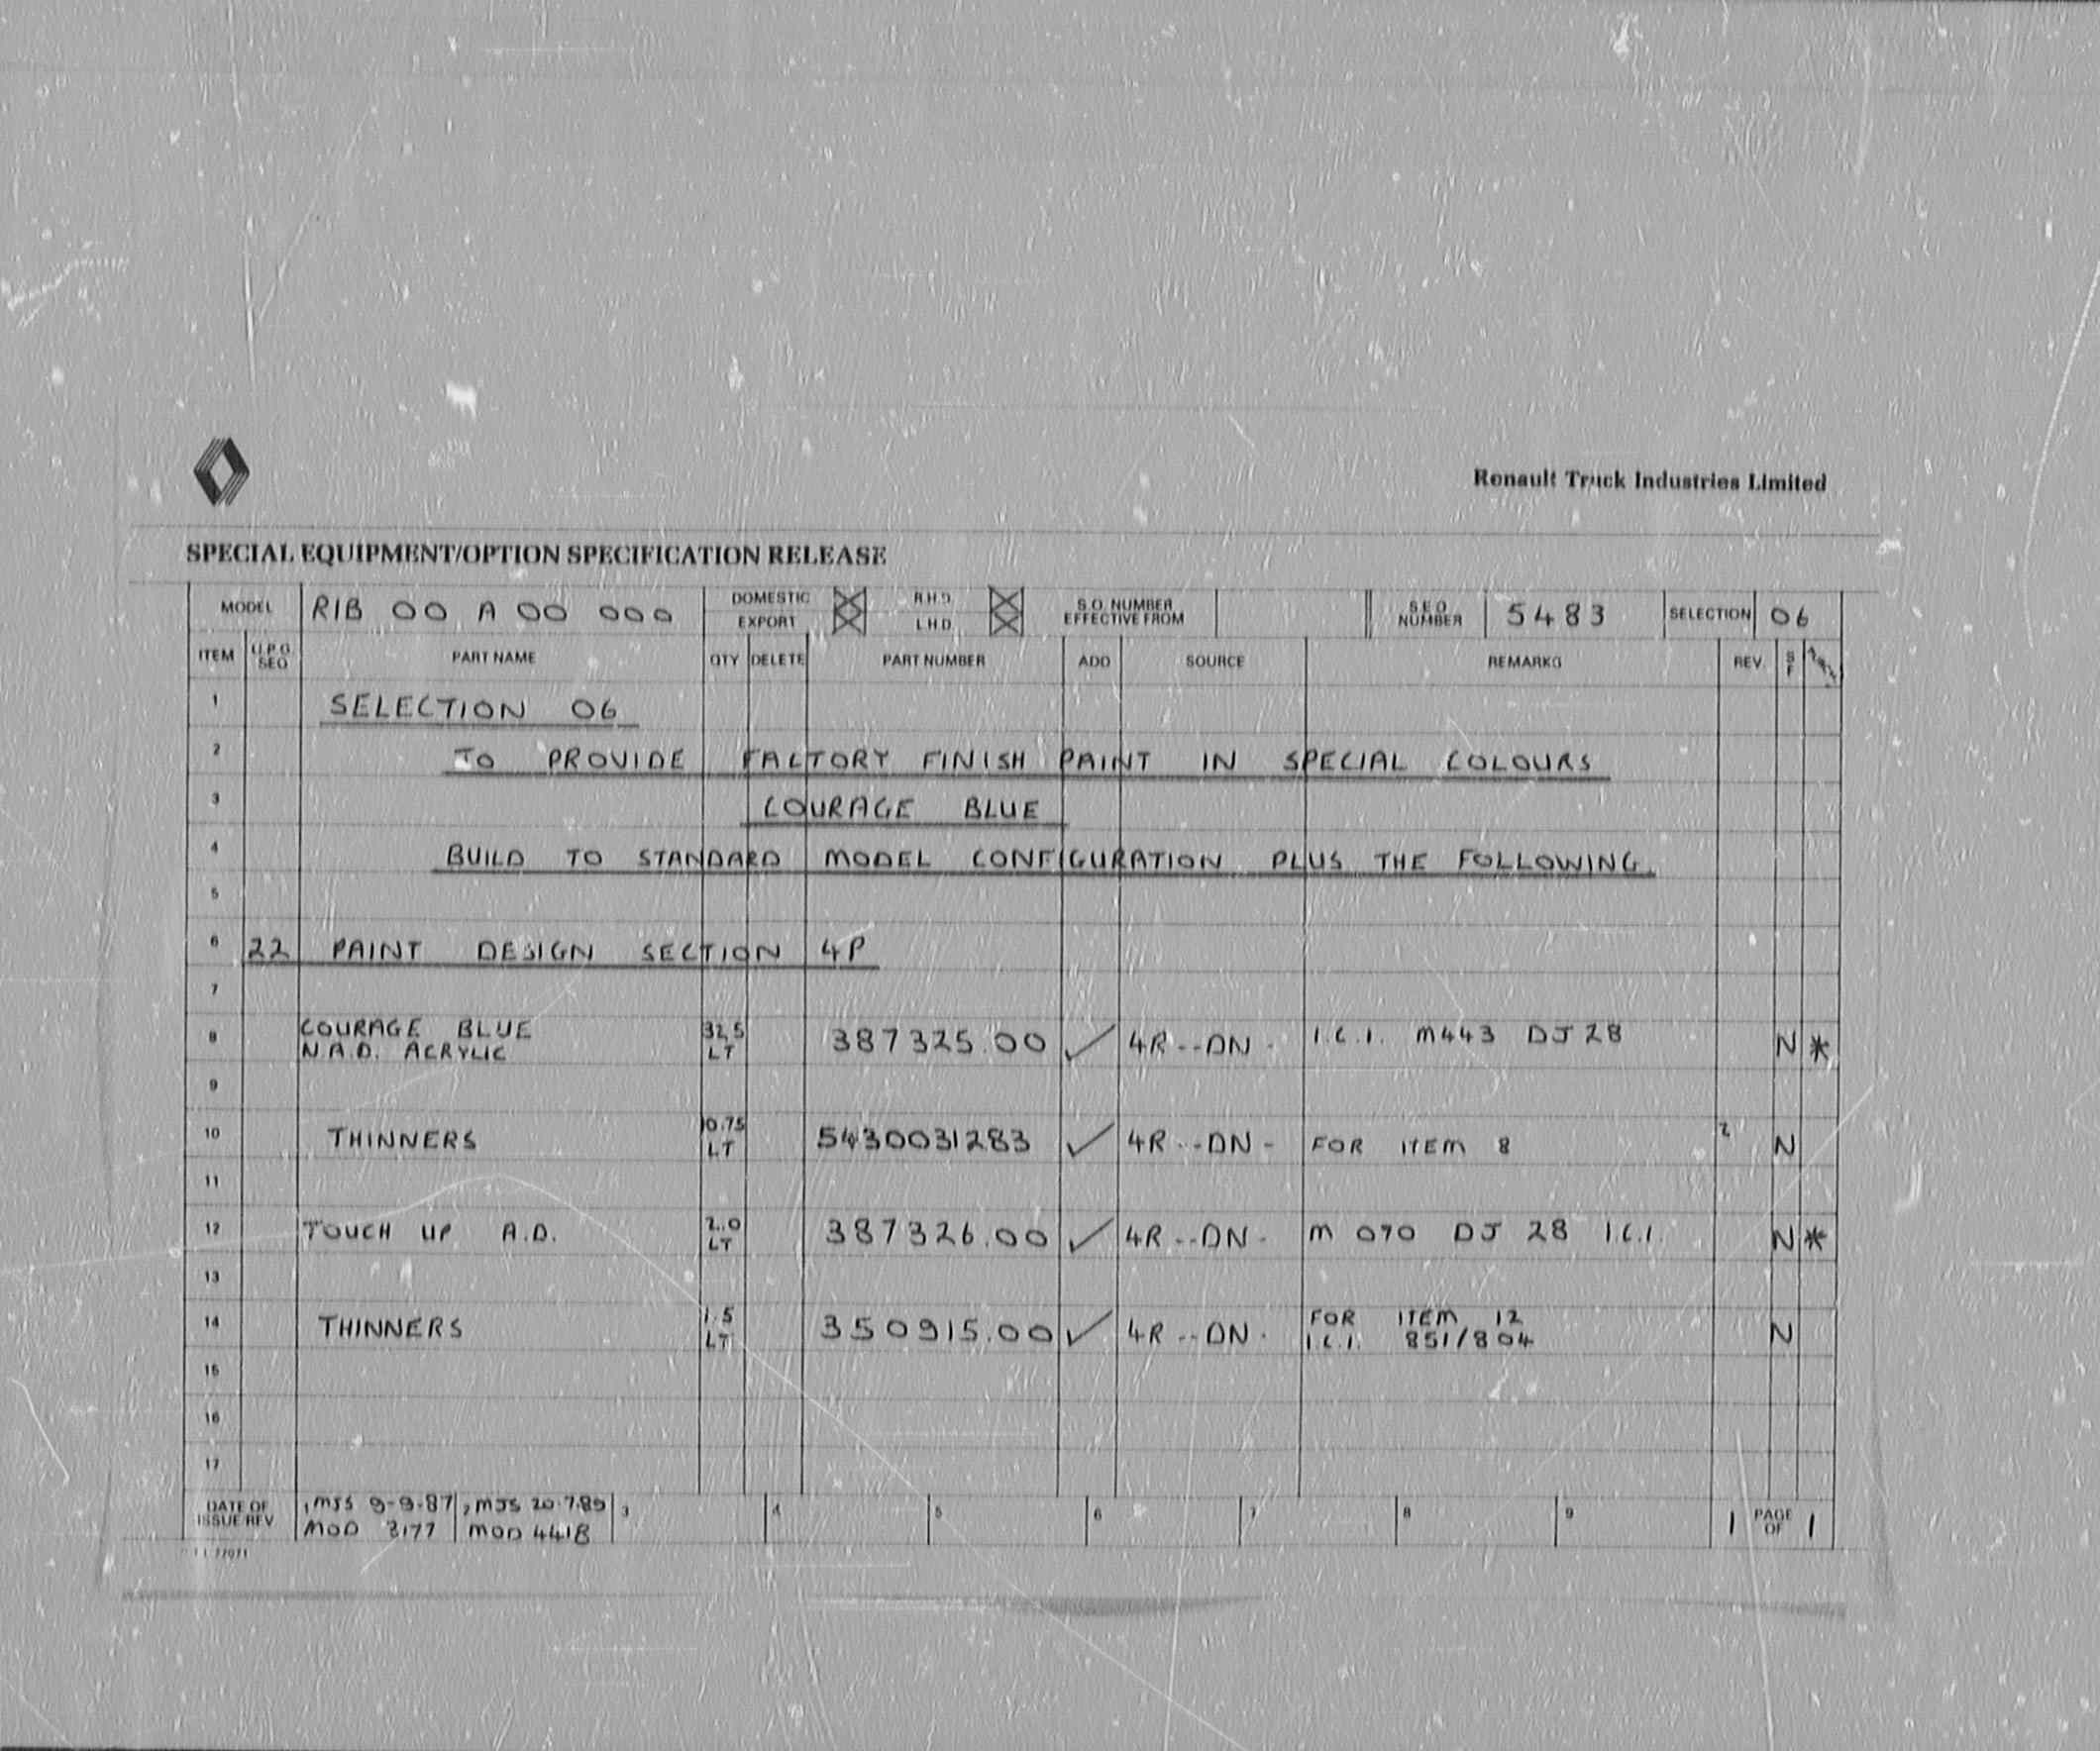 Renault Truck Industries Limited
SPECIAL EQUIPMENT/OPTION SPECIFICATION RELEASE
MODEL RIB 00 A 00 000 DOMESTIC EXPORT R.H.D. L.H.D. S.O. NUMBER EFFECTIVE FROM S.E.O. NUMBER 5483 SELECTION 06
ITEM U.P.G. SEQ PART NAME QTY DELETE PART NUMBER ADD SOURCE REMARKS REV. S F
1 SELECTION 06
2 TO PROVIDE FACTORY FINISH PAINT IN SPECIAL COLOURS
3 COURAGE BLUE
4 BUILD TO STANDARD MODEL CONFIGURATION PLUS THE FOLLOWING.
5
6 22 PAINT DESIGN SECTION 4P
7
8 COURAGE BLUE N.A.D. ACRYLIC 32,5 LT 387325.00 ✓ 4R--DN- I.C.I. M443 DJ28 N *
9
10 THINNERS 10.75 LT 5430031283 ✓ 4R--DN- FOR ITEM 8 2 N
11
12 TOUCH UP A.D. 2.0 LT 387326.00 ✓ 4R--DN- M 070 DJ 28 I.C.I. N *
13
14 THINNERS 1.5 LT 350915.00 ✓ 4R--DN- FOR ITEM 12 I.C.I. 851/804 N
15
16
17
DATE OF ISSUE/REV 1 MJS 9-9-87 MOD 3177 2 MJS 20.7.89 MOD 4418 3 4 5 6 7 8 9 1 PAGE OF 1